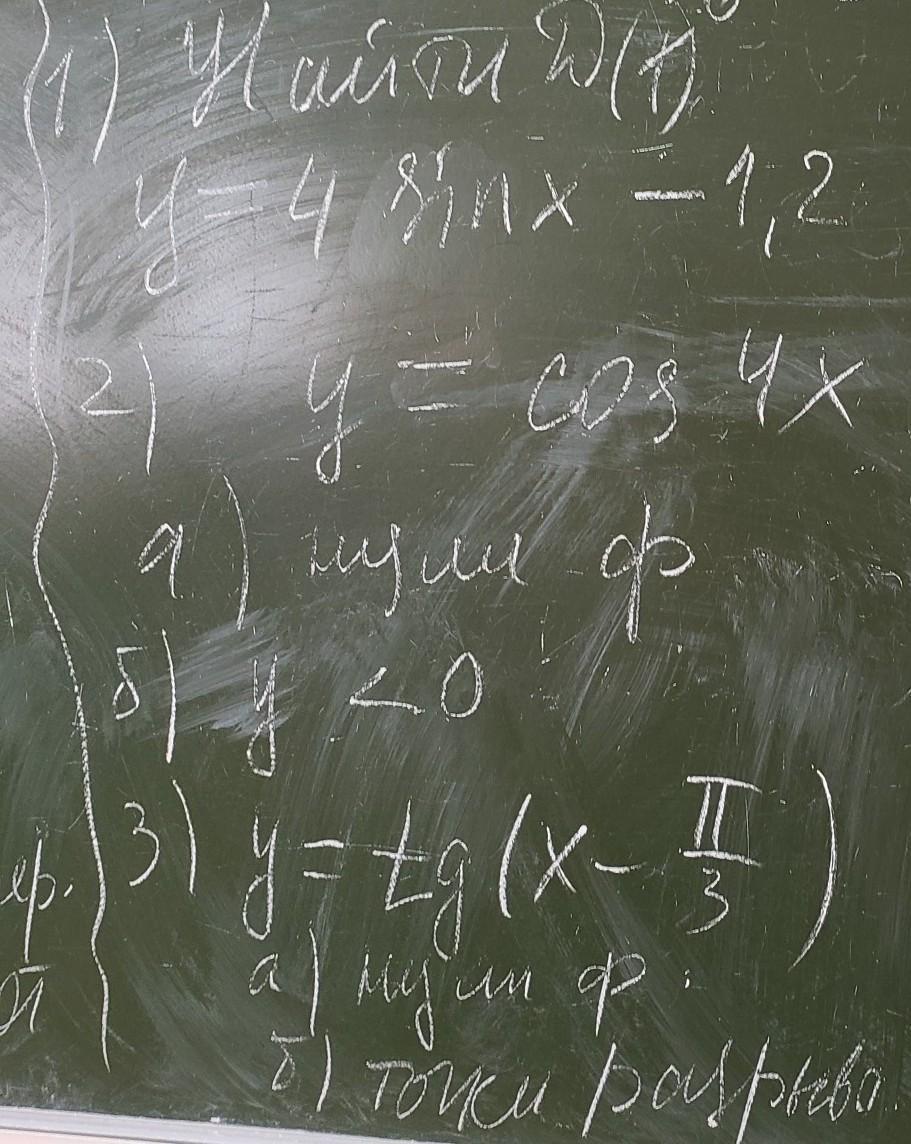 1) Найти D(f)
y = 4 sin x - 1,2
2) y = cos 4x
а) нули ф
б) y < 0
3) y = tg(x - π/3)
а) нули ф.
б) точки разрыва.